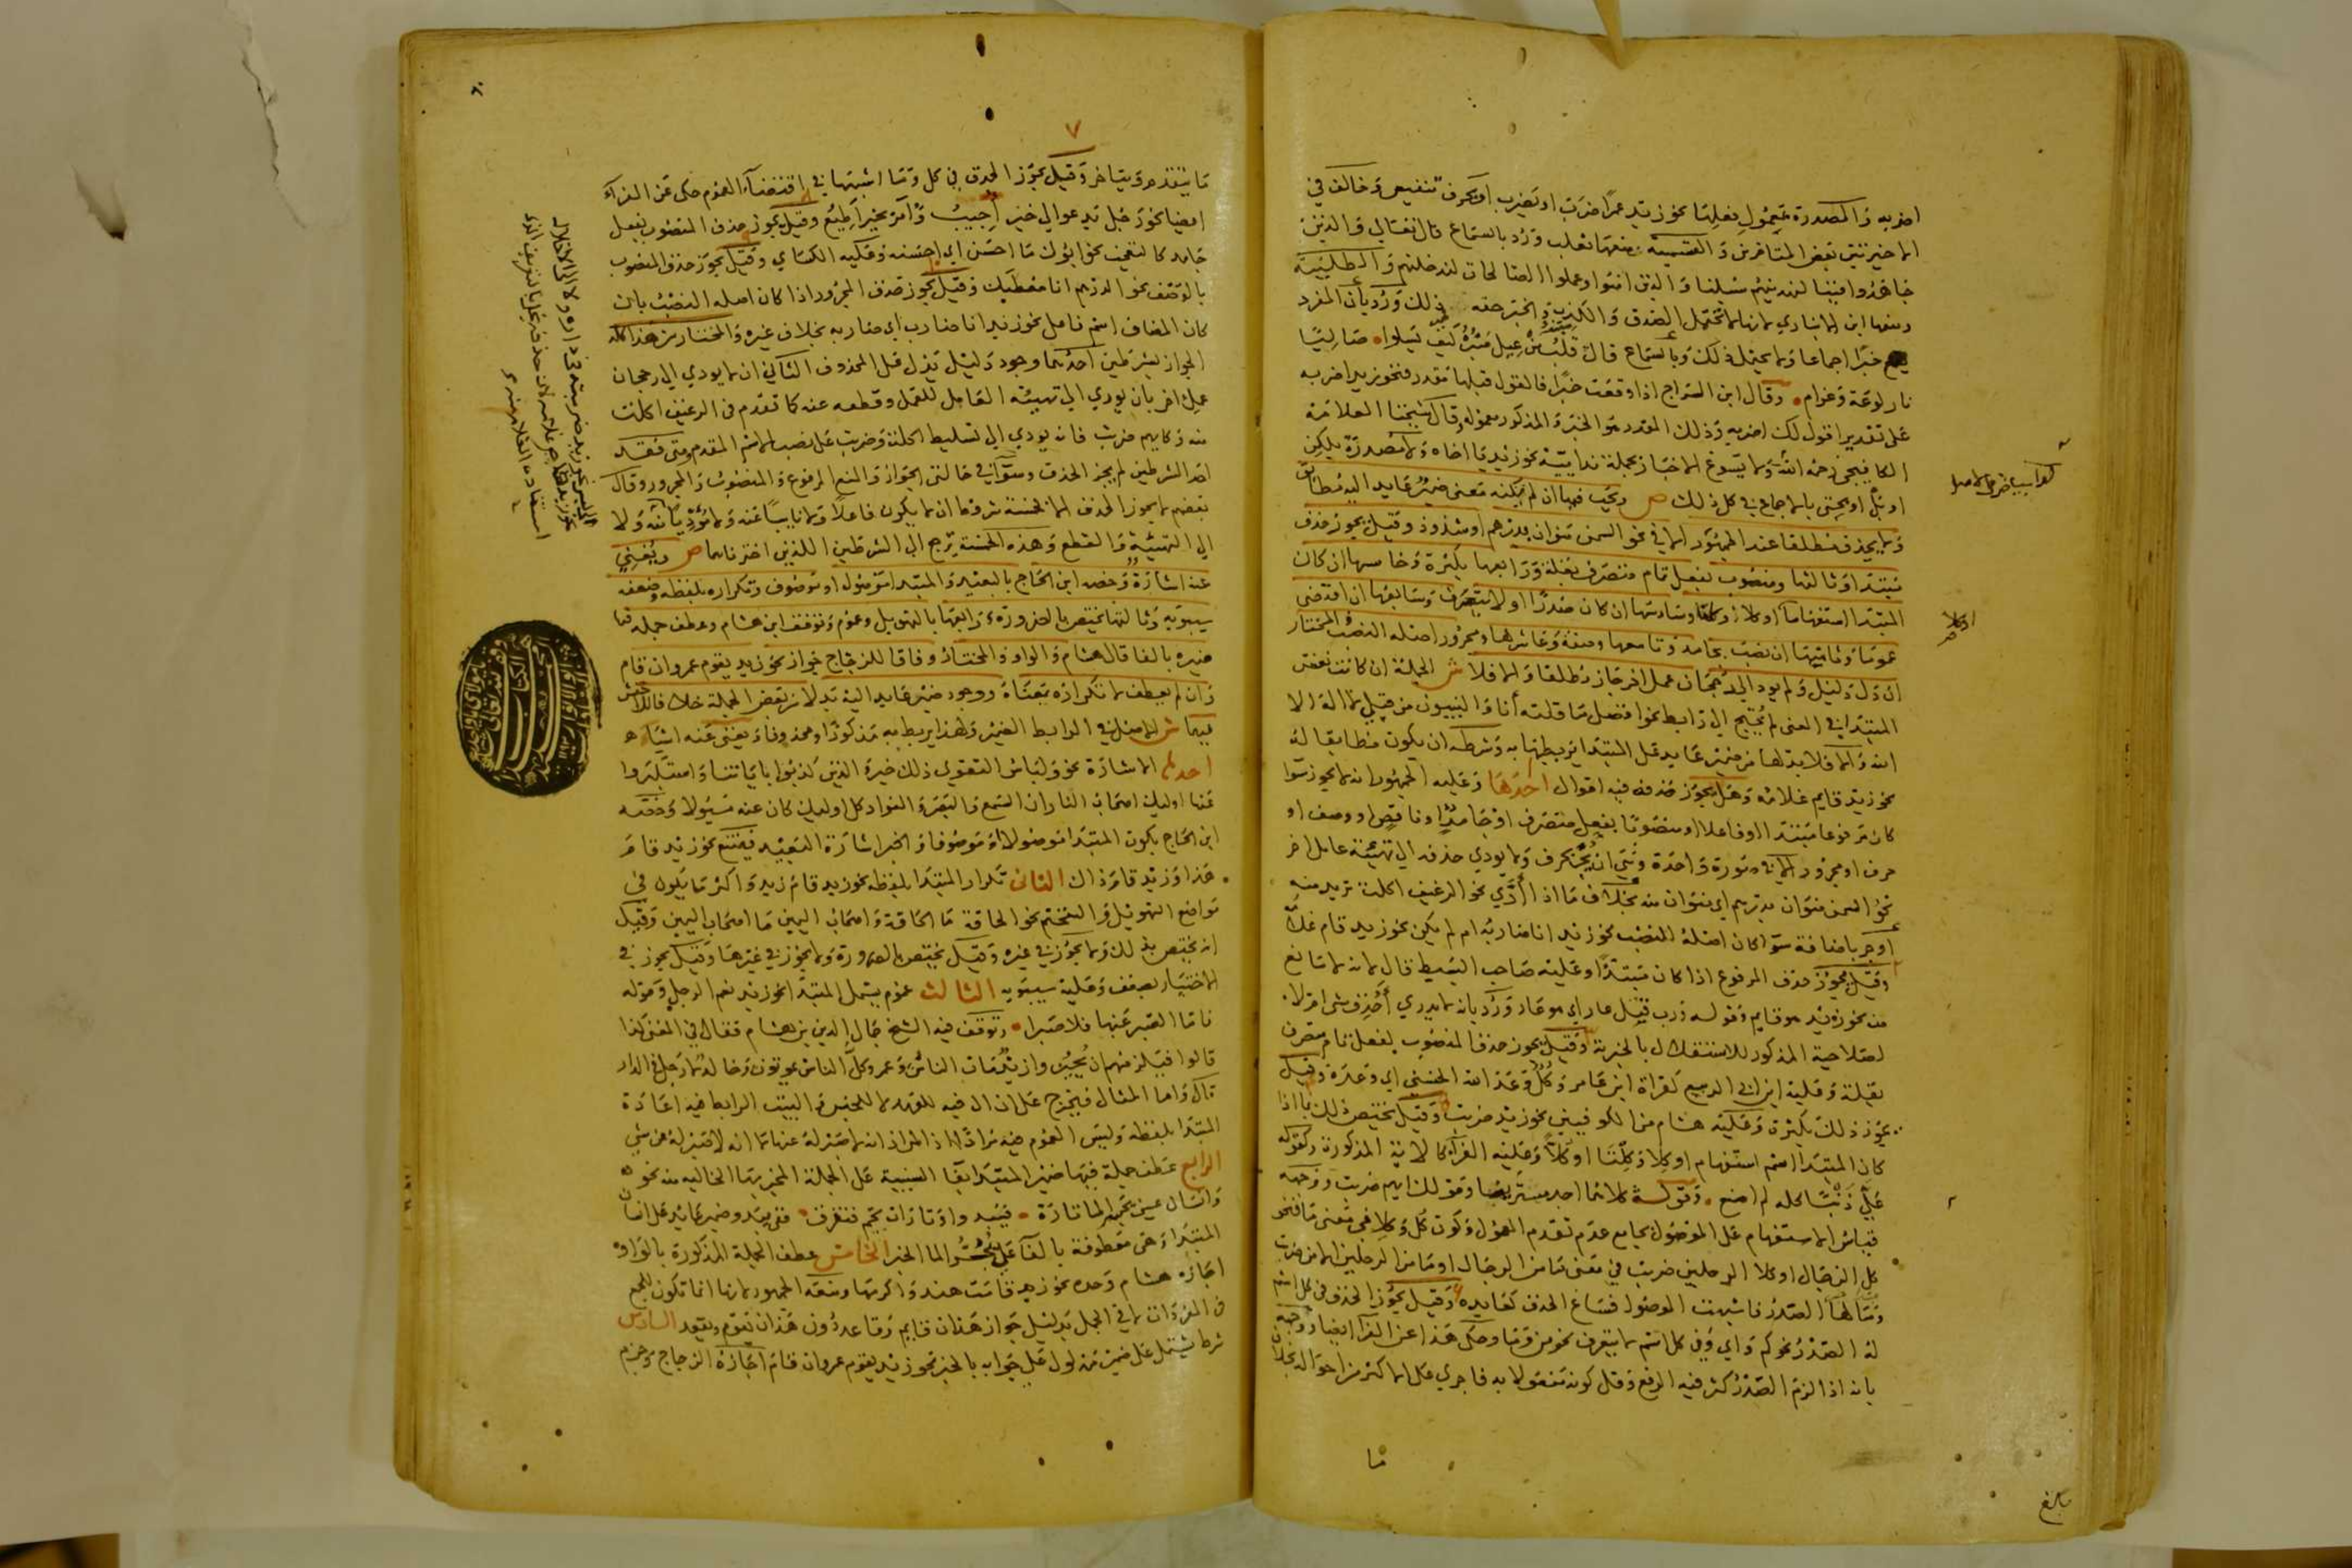 اضربه والمصدرة بمعمول فعلها نحو زيد عمرا ضرب او يضرب او بحرف تنفيس وخالف في
الاخيرتين بعض المتاخرين والقسمية منعها ثعلب ورد بالسماع قال تعالى والذين
جاهدوا فينا لنهدينهم سبلنا والذين امنوا وعملوا الصالحات لندخلنهم والطلبية
ومنعها ابن الانباري لانها لا تحتمل الصدق والكذب والخبر حقه ذلك ورد بان المفرد
يقع خبرا اجماعا ولا يحتمل ذلك وبالسماع قال قلب من عيل صبره كيف يسلوا صاليا
نار لوعة وغرام وقال ابن السراج اذا وقعت خبرا فالقول قبلها مقدر فنحو زيد اضربه
على تقدير اقول لك اضربه وذلك المقدر هو الخبر والمذكور معموله وقال شيخنا العلامة
الكافيجي رحمه الله ولا يسوغ الاخبار بجملة ندائية نحو زيد يا اخاه ولا مصدرة بلكن
او بل او بحتى بالاجماع في كل ذلك ص ويجب فيها ان لم تكنه معنى ضمير عايد اليه مطابق
ولا يحذف مطلقا عند الجمهور الا في نحو السمن منوان بدرهم او شذوذ وقيل يجوز حذف
مبتدا وثالثها ومنصوب بفعل تام متصرف بقلة ورابعها بكثرة وخامسها ان كان
المبتدا استفهاما او كلا او كلتا وسادسها ان كان صدرا او لا يتعرف وسابعها ان اقتضى
عموما وثامنها ان نصب بجامد وتاسعها وصفه وعاشرها ومجرور اصله النصب والمختار
ان دل دليل ولم يود الى رجحان عمل اخر جاز مطلقا والا فلا ش الجملة ان كانت نفس
المبتدا في المعنى لم يحتج الى رابط نحو افضل ما قلته انا والنبيون من قبلي لا اله الا
الله والا فلا بد لها من ضمير عايد على المبتدا يربطها به وشرطه ان يكون مطابقا له
نحو زيد قايم غلامه وهل يجوز حذفه فيه اقوال احدها وعليه الجمهور انه لا يجوز سوا
كان مرفوعا مبتدا او فاعلا او منصوبا بفعل متصرف او جامد او ناقص او وصف او
حرف او مجرور الا في صورة واحدة وهي ان يجر بحرف ولا يودي حذفه الى تهيئة عامل اخر
نحو السمن منوان بدرهم اي منوان منه بخلاف ما اذا ادى نحو الرغيف اكلت تريد منه
او جر باضافة سوا كان اصله النصب نحو زيد انا ضاربه ام لم يكن نحو زيد قام غلامه
وقيل يجوز حذف المرفوع اذا كان مبتدا وعليه صاحب البسيط قال لانه لا مانع
منه نحو زيد هو قايم وقوله ورب قتل عار اي هو عار ورد بانه لا يدري احذف شي ام لا
لصلاحية المذكور للاستقلال بالخبرية وقيل يجوز حذف المنصوب بفعل تام متصرف
بقلة وعليه ابن ابي الربيع كقراة ابن عامر وكل وعد الله الحسنى اي وعده وقيل
يجوز ذلك بكثرة وعليه هشام من الكوفيين نحو زيد ضربت وقيل يختص ذلك بما اذا
كان المبتدا اسم استفهام او كلا وكلتا او كلا وعليه الفرا كالاية المذكورة وكقوله
علي ذنبا كله لم اصنع وقوله كلاهما اجيد مستريضا وقولك ايهم ضربت ووجهه
قياس الاستفهام على الموصول بجامع عدم تقدم المعمول وكون كل وكلا في معنى ما فنحو
كل الرجال او كلا الرجلين ضربت في معنى ما من الرجال او ما من الرجلين الا من ضربت
وما لها الصدر فاشبهت الموصول فساغ الحذف كعايده وقيل يجوز الحذف في كل اسم
له الصدر نحو كم واي وفي كل اسم لا يتعرف نحو من وما وحكى هذا عن الفرا ايضا ووجه
بانه اذا لزم الصدر كثر فيه الرفع وقل كونه مفعولا به فاجري على الاكثر من احواله بخلاف
ما
بلغ
٧
ما يتقدم ويتاخر وقيل يجوز الحذف في كل وما اشبهها في اقتضاء العموم حكى عن الفراء
ايضا نحو رجل يدعو الى خير اجيب وامر بخير اطيع وقيل يجوز حذف المنصوب بفعل
جامد كالتعجب نحو ابوك ما احسن اي احسنه وعليه الكساي وقيل يجوز حذف المنصوب
بالوصف نحو الدرهم انا معطيك وقيل يجوز حذف المجرور اذا كان اصله النصب بان
كان المضاف اسم فاعل نحو زيد انا ضارب اي ضاربه بخلاف غيره والمختار من هذا كله
الجواز بشرطين احدهما وجود دليل يدل على المحذوف الثاني ان لا يودي الى رجحان
عمل اخر بان يودي الى تهيئة العامل للعمل وقطعه عنه كما تقدم في الرغيف اكلت
منه وكايهم ضربت فانه يودي الى تسليط اكلت وضربت على نصب الاسم المقدم ومتى فقد
احد الشرطين لم يجز الحذف وسوا في حالتي الجواز والمنع المرفوع والمنصوب والمجرور وقال
بعضهم لا يجوز الحذف الا بخمسة شروط ان لا يكون فاعلا ولا نايبا عنه ولا مؤديا الى
الى التهيئة والقطع وهذه الخمسة ترجع الى الشرطين اللذين اخترناهما ص ويغني
عنه اشارة وخصه ابن الحاج بالبعيد والمبتدا موصول او موصوف وتكراره بلفظه وضعفه
سيبويه وثالثها يختص بالضرورة ورابعها بالتهويل وعموم وتوقف ابن هشام وعطف جملة فيها
ضميره بالفا قال هشام والواو والمختار وفاقا للزجاج جواز نحو زيد يقوم عمرو ان قام
وان لم يعطف لا تكراره بمعناه ووجود ضمير عايد اليه بدلا من بعض الجملة خلافا للاخفش
فيهما ش الاصل في الرابط الضمير ولهذا يربط به مذكورا ومحذوفا ويغني عنه اشياء
احدها الاشارة نحو ولباس التقوى ذلك خير والذين كذبوا باياتنا واستكبروا
عنها اوليك اصحاب النار ان السمع والبصر والفواد كل اوليك كان عنه مسئولا وخصه
ابن الحاج بكون المبتدا موصولا او موصوفا والخبر اشارة البعيد فيمتنع نحو زيد قام
هذا وزيد قام ذاك الثاني تكرار المبتدا بلفظه نحو زيد قام زيد واكثر ما يكون في
مواضع التهويل والتفخيم نحو الحاقة ما الحاقة واصحاب اليمين ما اصحاب اليمين وقيل
انه يختص بذلك ولا يجوز في غيره وقيل يختص بالضرورة ولا يجوز في غيرها وقيل يجوز في
الاختيار بضعف وعليه سيبويه الثالث عموم يشمل المبتدا نحو زيد نعم الرجل وقوله
فاما الصبر عنها فلا صبرا وتوقف فيه الشيخ جمال الدين بن هشام فقال في المغني كذا
قالوا فيلزمهم ان يجيزوا زيد مات الناس وعمرو كل الناس يموتون وخالد لا رجل في الدار
قال واما المثال فيخرج على ان ال فيه للعهد لا للجنس والبيت الرابط فيه اعادة
المبتدا بلفظه وليس العموم فيه مرادا اذ المراد انه لا صبر له عنها لا انه لا صبر له عن شي
الرابع عطف جملة فيها ضمير المبتدا بفا السببية على الجملة المخبر بها الخالية منه نحو
وانسان عيني يحسر الما تارة فيبدو وتارات يجم فيغرق ففي يبدو ضمير عايد على انسان
المبتدا وهي معطوفة بالفا على يحسر الما الخبر الخامس عطف الجملة المذكورة بالواو
اجازه هشام وحده نحو زيد قامت هند واكرمها ومنعه الجمهور لانها انما تكون للجمع
في المفردات لا في الجمل بدليل جواز هذان قايم وقاعد دون هذان يقوم ويقعد السادس
شرط يشتمل على ضمير مدلول على جوابه بالخبر نحو زيد يقوم عمرو ان قام اجازه الزجاج وجزم